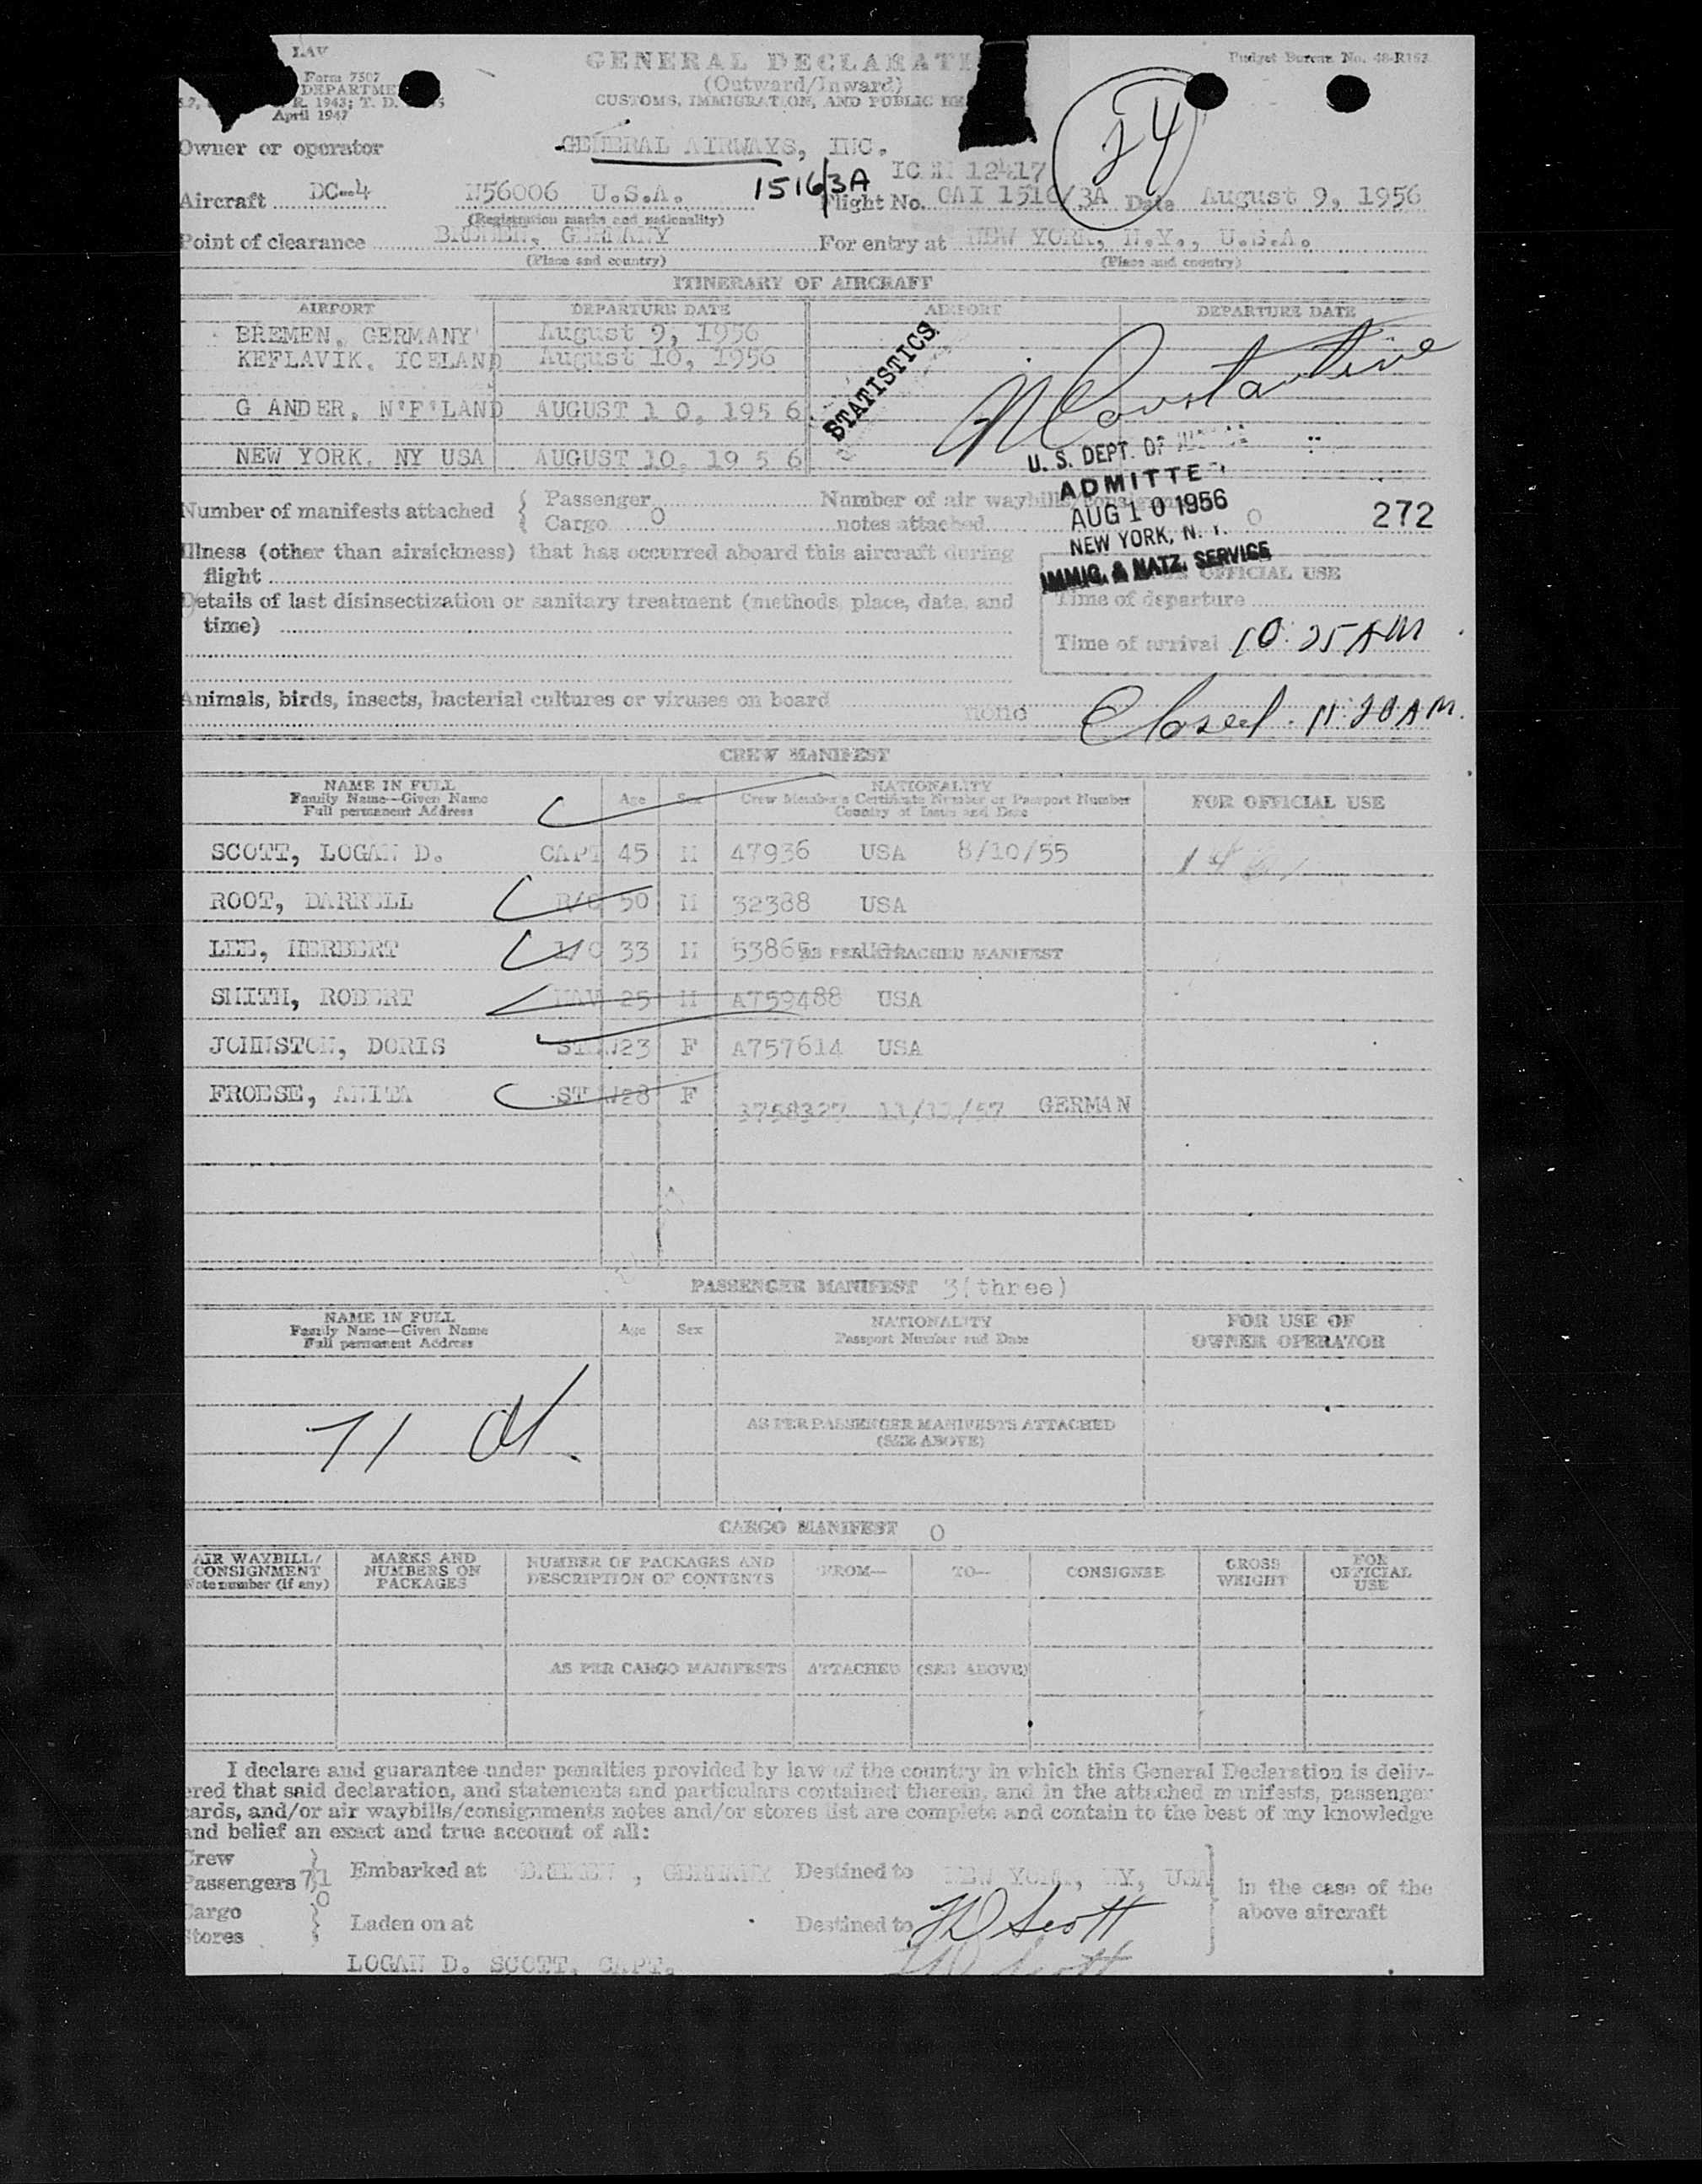 LAV
GENERAL DECLARATI
Budget Bureau No. 48-R167
Form 7507
(Outward/Inward)
DEPARTME
R. 1943; T. D.
CUSTOMS, IMMIGRATION, AND PUBLIC HE
April 1947
24
Owner or operator GENERAL AIRWAYS, INC.
1516/3A
Aircraft DC-4 N56006 U.S.A. Flight No. GAI 1516/3A Date August 9, 1956
(Registration marks and nationality)
Point of clearance BREMEN, GERMANY For entry at NEW YORK, N.Y., U.S.A.
(Place and country) (Place and country)
ITINERARY OF AIRCRAFT
AIRPORT DEPARTURE DATE AIRPORT DEPARTURE DATE
BREMEN, GERMANY August 9, 1956
KEFLAVIK, ICELAND August 10, 1956
STATISTICS
N Constantine
G ANDER, N'F'LAND AUGUST 1 0, 195 6
NEW YORK, NY USA AUGUST 10, 19 5 6
U. S. DEPT. OF
ADMITTE
AUG 10 1956
NEW YORK, N. Y.
IMMIG. & NATZ. SERVICE
Number of manifests attached { Passenger Number of air waybills/consignment
Cargo 0 notes attached 0 272
Illness (other than airsickness) that has occurred aboard this aircraft during
flight
FOR OFFICIAL USE
Details of last disinsectization or sanitary treatment (methods, place, date, and
time)
Time of departure
Time of arrival 10:25 AM
Animals, birds, insects, bacterial cultures or viruses on board none
Closed 11:20 AM.
CREW MANIFEST
NAME IN FULL
Family Name—Given Name
Full permanent Address
Age Sex
NATIONALITY
Crew Member's Certificate Number or Passport Number
Country of Issue and Date
FOR OFFICIAL USE
SCOTT, LOGAN D. CAPT 45 M 47936 USA 8/10/55
ROOT, DARRELL 50 M 32388 USA
LEE, HERBERT 33 M 53865 AS PER ATTACHED MANIFEST
SMITH, ROBERT NAV 25 M A759488 USA
JOHNSTON, DORIS STEW 23 F A757614 USA
FROESE, ANITA STEW 28 F GERMAN
PASSENGER MANIFEST 3(three)
NAME IN FULL
Family Name—Given Name
Full permanent Address
Age Sex
NATIONALITY
Passport Number and Date
FOR USE OF
OWNER OPERATOR
71
AS PER PASSENGER MANIFESTS ATTACHED
(SEE ABOVE)
CARGO MANIFEST 0
AIR WAYBILL/
CONSIGNMENT
Note number (if any)
MARKS AND
NUMBERS ON
PACKAGES
NUMBER OF PACKAGES AND
DESCRIPTION OF CONTENTS
FROM—
TO—
CONSIGNEE
GROSS
WEIGHT
FOR
OFFICIAL
USE
AS PER CARGO MANIFESTS ATTACHED (SEE ABOVE)
I declare and guarantee under penalties provided by law of the country in which this General Declaration is deliv-
ered that said declaration, and statements and particulars contained therein, and in the attached manifests, passenger
cards, and/or air waybills/consignments notes and/or stores list are complete and contain to the best of my knowledge
and belief an exact and true account of all:
Crew
Passengers 71 Embarked at BREMEN, GERMANY Destined to NEW YORK, NY, USA in the case of the
0
Cargo above aircraft
Stores Laden on at Destined to LD Scott
LOGAN D. SCOTT, CAPT. LD Scott